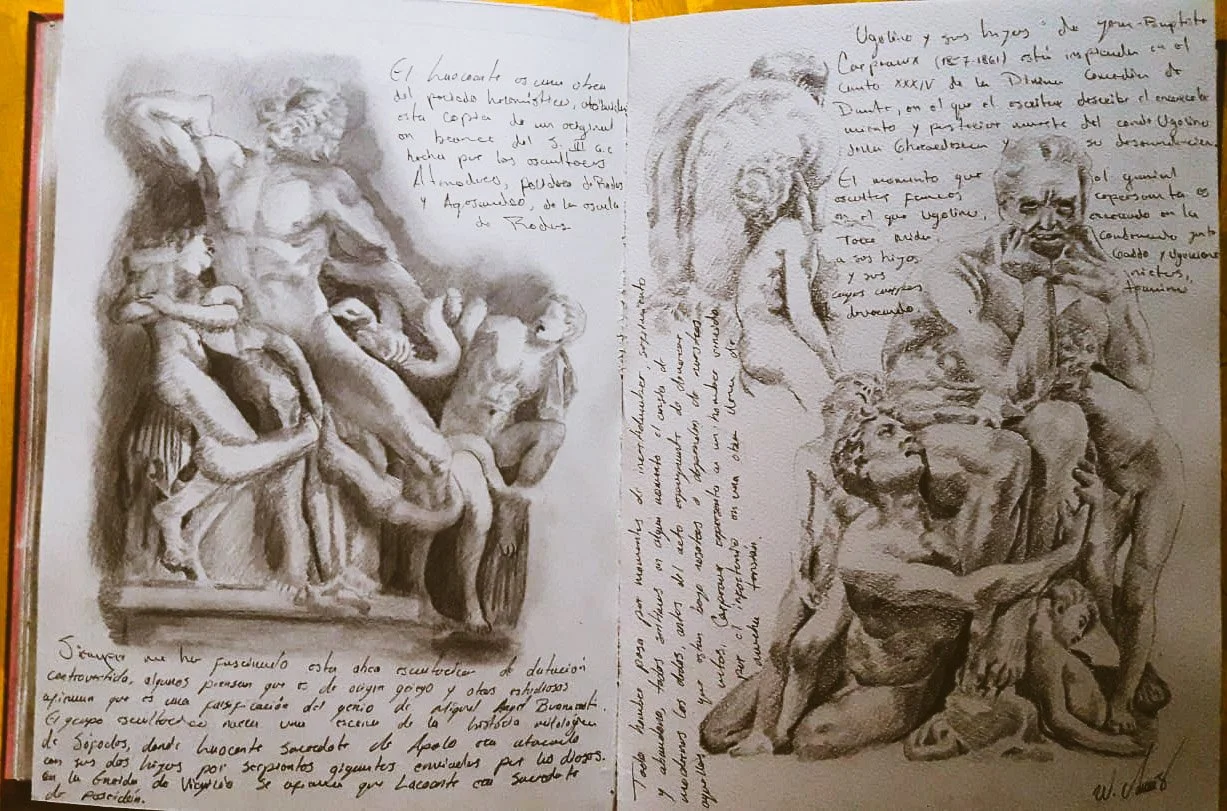 El Laocoonte es una obra
del periodo helenístico,
esta copia de un original
en bronce del S. III a.c
hecha por los escultores
Atenodoro, Polidoro de Rodas
y Agesandro, de la escuela
de Rodas
Siempre me ha fascinado esta obra escultórica de datación
controvertida, algunos piensan que es de origen griego y otros estudiosos
afirman que es una falsificación del genio de Miguel Angel Buonarroti.
El grupo escultórico narra una escena de la historia mitológica
de Sófocles, donde Laocoonte sacerdote de Apolo era atacado
con sus dos hijos por serpientes gigantes enviadas por los dioses.
En la Eneida de Virgilio se afirma que Laconte era sacerdote
de Poseidón.
Ugolino y sus hijos de Jean-Baptiste
Carpeaux (1857-1861) está inspirada en el
canto XXXIV de la Divina Comedia de
Dante, en el que el escritor describe el
y posterior muerte del conde Ugolino
della Gherardesca y su descendencia.
El momento que el genial
escultor francés representa es
en el que Ugolino,
a sus hijos Gaddo y
y sus
cuyos cuerpos
devorando.
Todo hombre pasa por momentos de incertidumbre,
y abandono, todos sentimos en algún momento el
mordernos los dedos, antes del acto repugnante de devorar
aquellos que están bajo nosotros o dependen de nuestros
Carpeaux representa a un hombre vencido
por el infortunio en una obra llena de
mucha tensión.